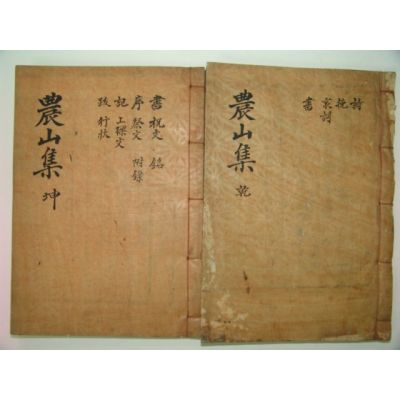 詩
挽
哀詞
書
農山集 乾
書 祝文 銘
序 祭文 附錄
記 上樑文
跋 行狀
農山集 坤